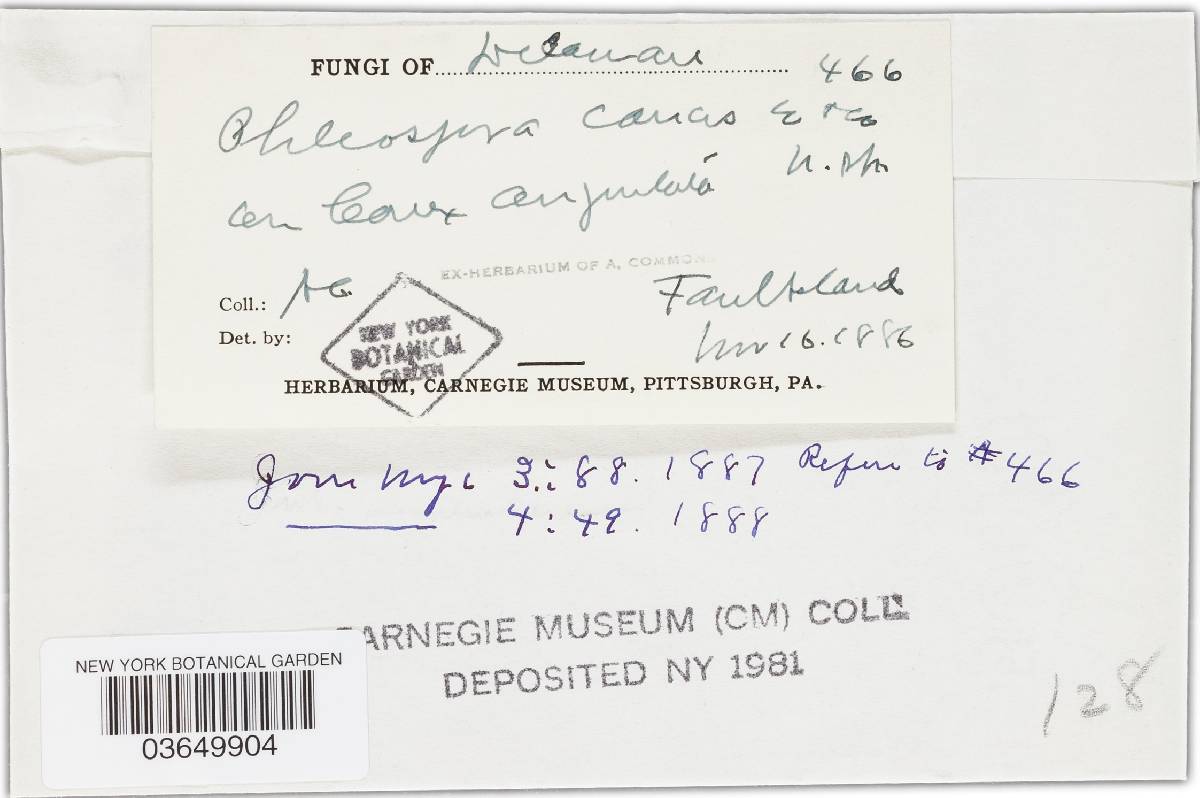 FUNGI OF Delaware 466
Phleospora caricis E & Ev
on Carex angulata n. sp.
EX-HERBARIUM OF A. COMMONS
Coll.: AC Faulkland
Det. by: Nov 16. 1886
NEW YORK
BOTANICAL
GARDEN
HERBARIUM, CARNEGIE MUSEUM, PITTSBURGH, PA.
Jour Myc 3: 88. 1887 Refers to #466
4: 49. 1888
CARNEGIE MUSEUM (CM) COLL.
DEPOSITED NY 1981
NEW YORK BOTANICAL GARDEN
03649904
128